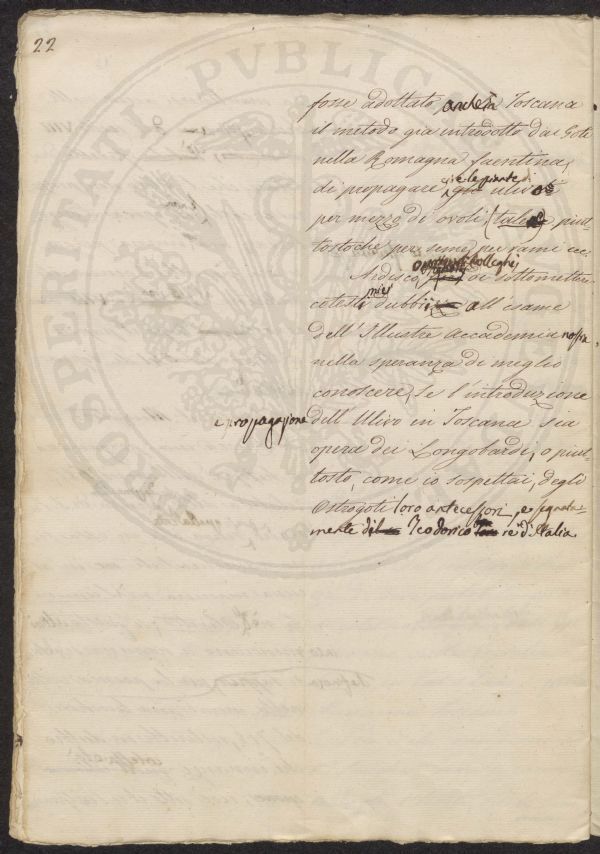 22
fosse adottato, anche in Toscana
il metodo già introdotto dai Goti
nella Romagna faentina,
di propagare le piante di ulivo
per mezzo di ovoli, (talee) piut-
tostoché per seme, per rami ecc.
Ardisco Colleghi, di sottomettere
cotesti miei dubbi all'esame
dell'Illustre Accademia nostra
nella speranza di meglio
conoscere, se l'introduzione
e propagazione
dell'Ulivo in Toscana sia
opera dei Longobardi, o piut-
tosto, come io sospettai, degli
Ostrogoti loro antecessori, e segnata-
mente di Teodorico re d'Italia
PROSPERITATI PUBLICAE